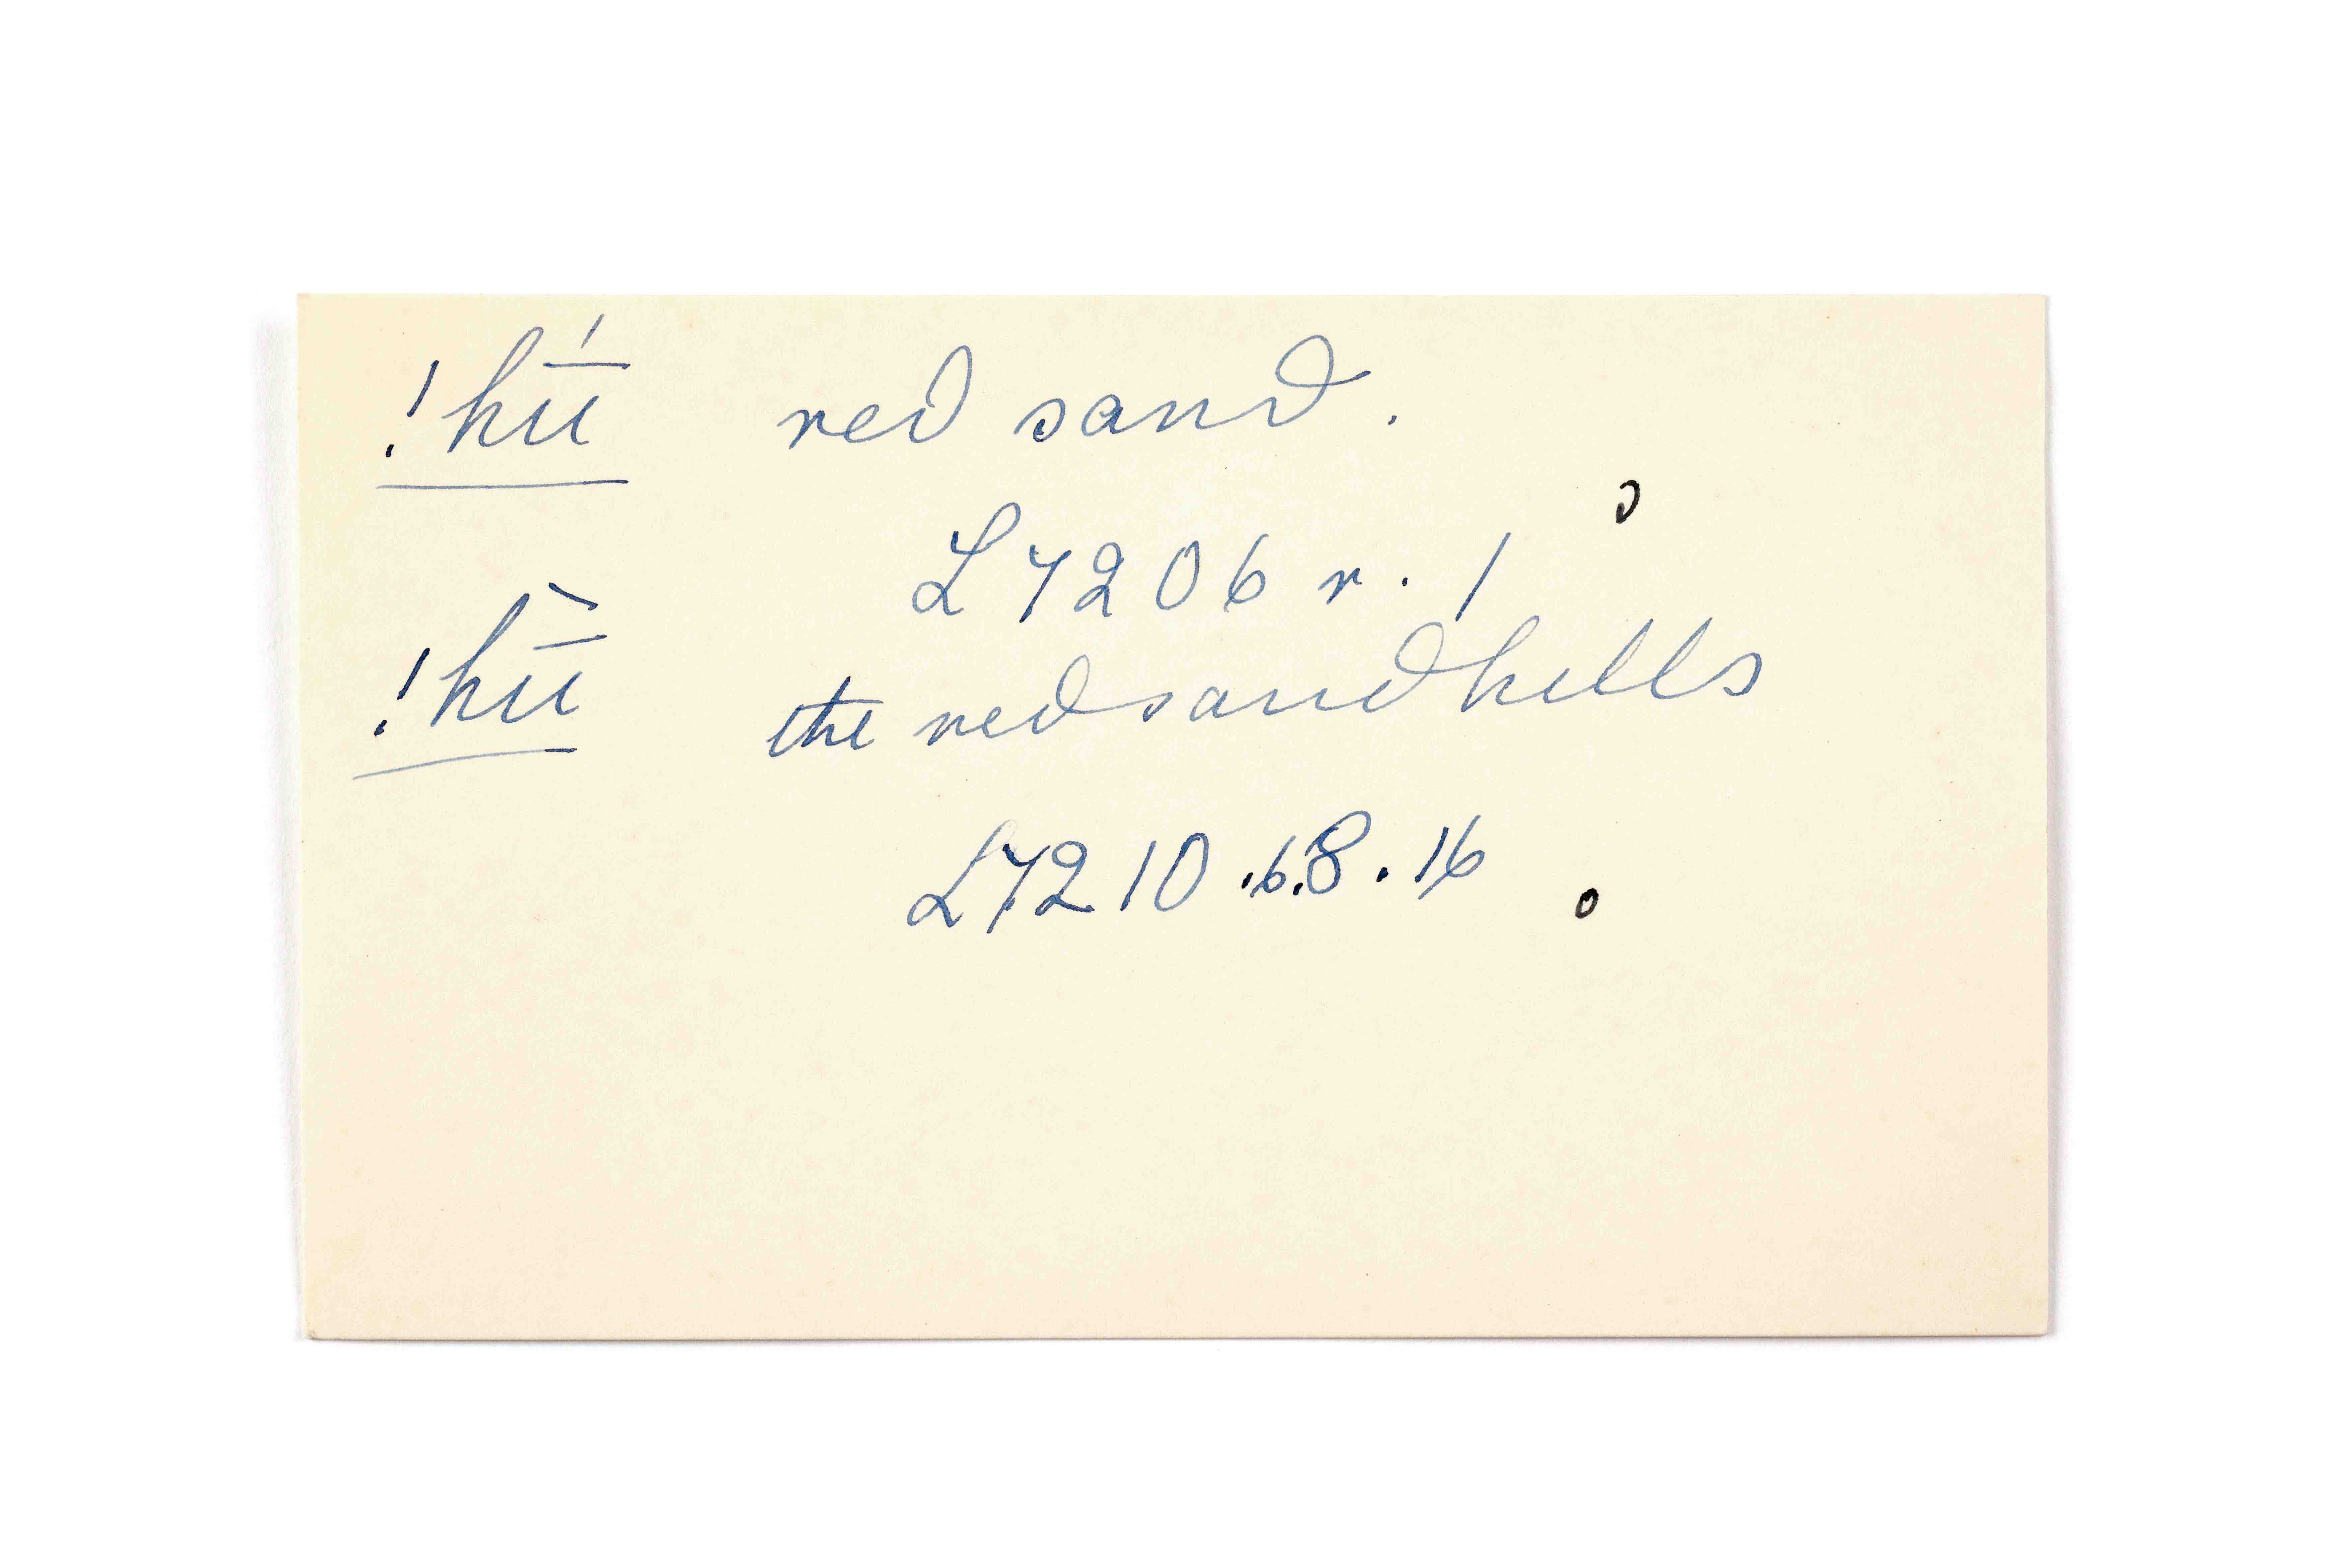 !hú̄ red sand.
L7206 r. 1
!hù̄ the red sandhills
L7210.6.8.16